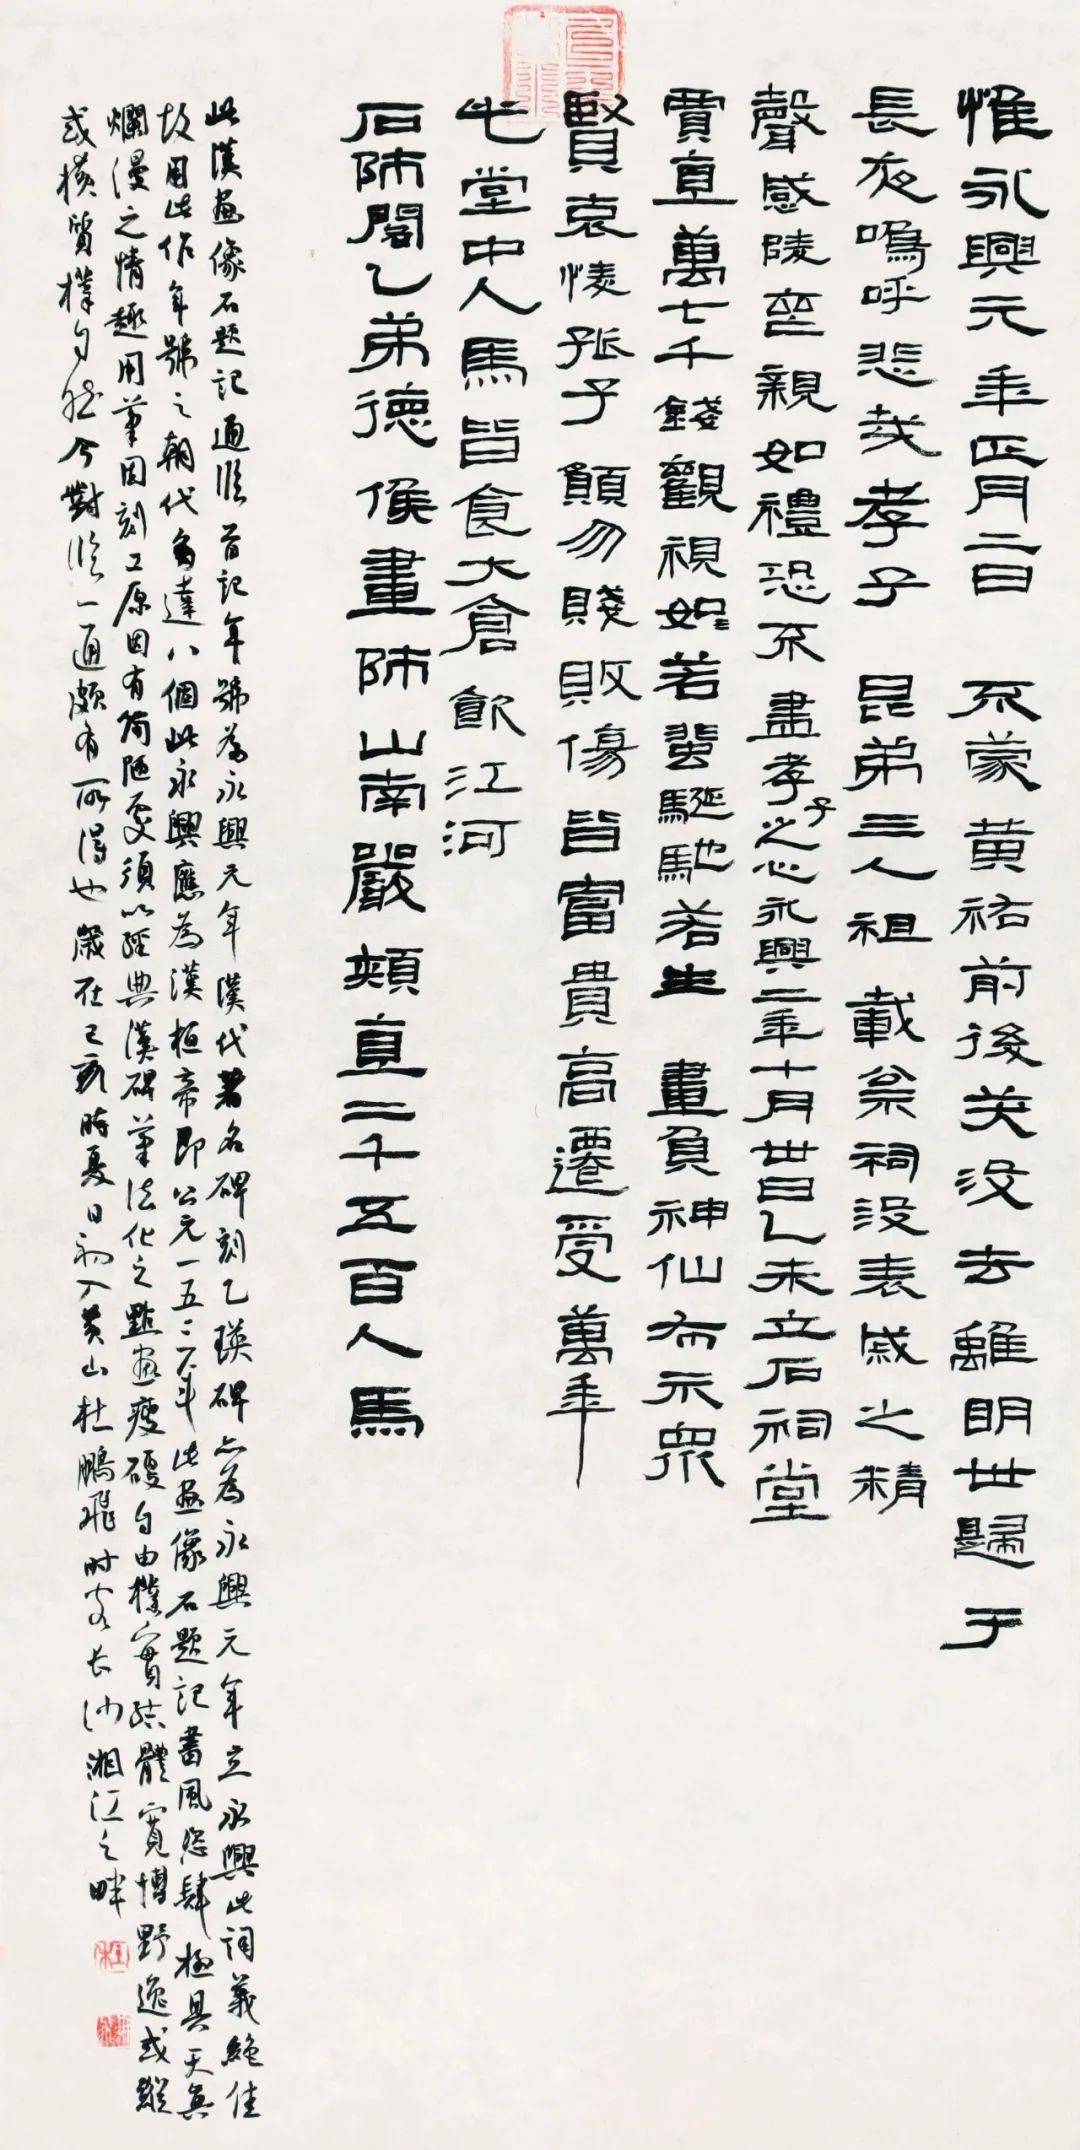 惟永興元年正月二日 不蒙黄祐前後失没去離明世歸于
長夜嗚呼悲哉孝子 昆弟三人祖載爺祠没表戚之精
聲感陵
親如禮恐不盡孝子之心永興二年十月卅日乙未立石祠堂
賈直萬七千錢觀視
若蜚駈馳若生 畫負神仙布示衆
賢哀懐孤子 願勿賤敗傷皆富貴高遷受萬年
此堂中人馬皆食大倉飲江河
石師閻乙弟德侯畫師山南嚴頰直二千五百人馬
此漢畫像石題記通臨首記年號為永興元年漢代著名碑刻乙瑛碑亦為永興元年立永興此詞義絶佳
故用此作年號之朝代多達八個此永興應為漢桓帝即公元一五三年此畫像石題記書風恣肆極具天真
爛漫之情趣用筆因刻工原因有簡陋處須以經典漢碑筆法化之點畫瘦硬自由樸實結體寬博野逸或縱
或横質樸自然今對臨一通頗有所得也歲在己亥時夏日初入黄山杜鵬飛时客长沙湘江之畔